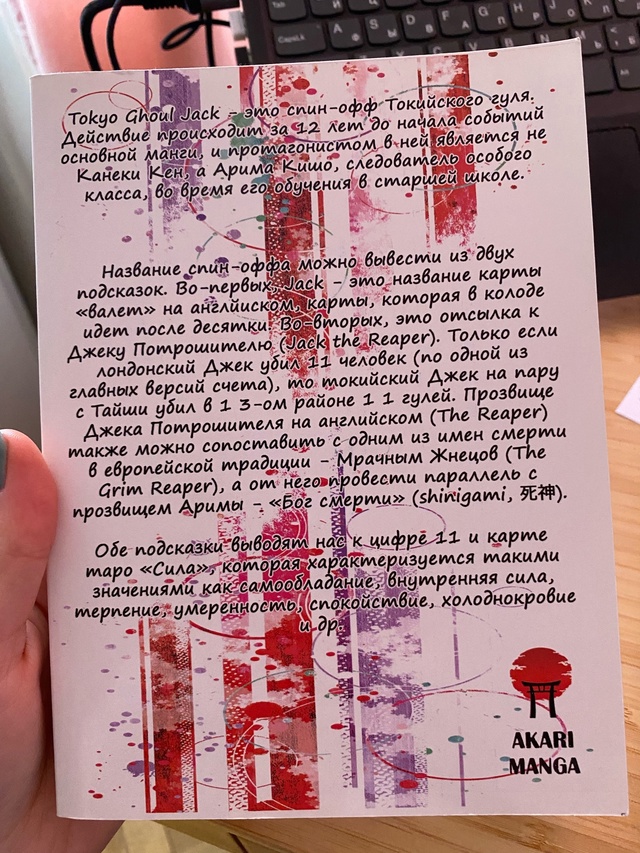 Tokyo Ghoul Jack - это спин-офф Токийского гуля.
Действие происходит за 12 лет до начала событий
основной манги, и протагонистом в ней является не
Канеки Кен, а Арима Кишо, следователь особого
класса, во время его обучения в старшей школе.
Название спин-оффа можно вывести из двух
подсказок. Во-первых, Jack - это название карты
«валет» на английском, карты, которая в колоде
идет после десятки. Во-вторых, это отсылка к
Джеку Потрошителю (Jack the Reaper). Только если
лондонский Джек убил 11 человек (по одной из
главных версий счета), то токийский Джек на пару
с Тайши убил в 1 3-ом районе 1 1 гулей. Прозвище
Джека Потрошителя на английском (The Reaper)
также можно сопоставить с одним из имен смерти
в европейской традиции - Мрачным Жнецов (The
Grim Reaper), а от него провести параллель с
прозвищем Аримы - «Бог смерти» (shinigami, 死神).
Обе подсказки выводят нас к цифре 11 и карте
таро «Сила», которая характеризуется такими
значениями как самообладание, внутренняя сила,
терпение, умеренность, спокойствие, холоднокровие
и др.
AKARI
MANGA